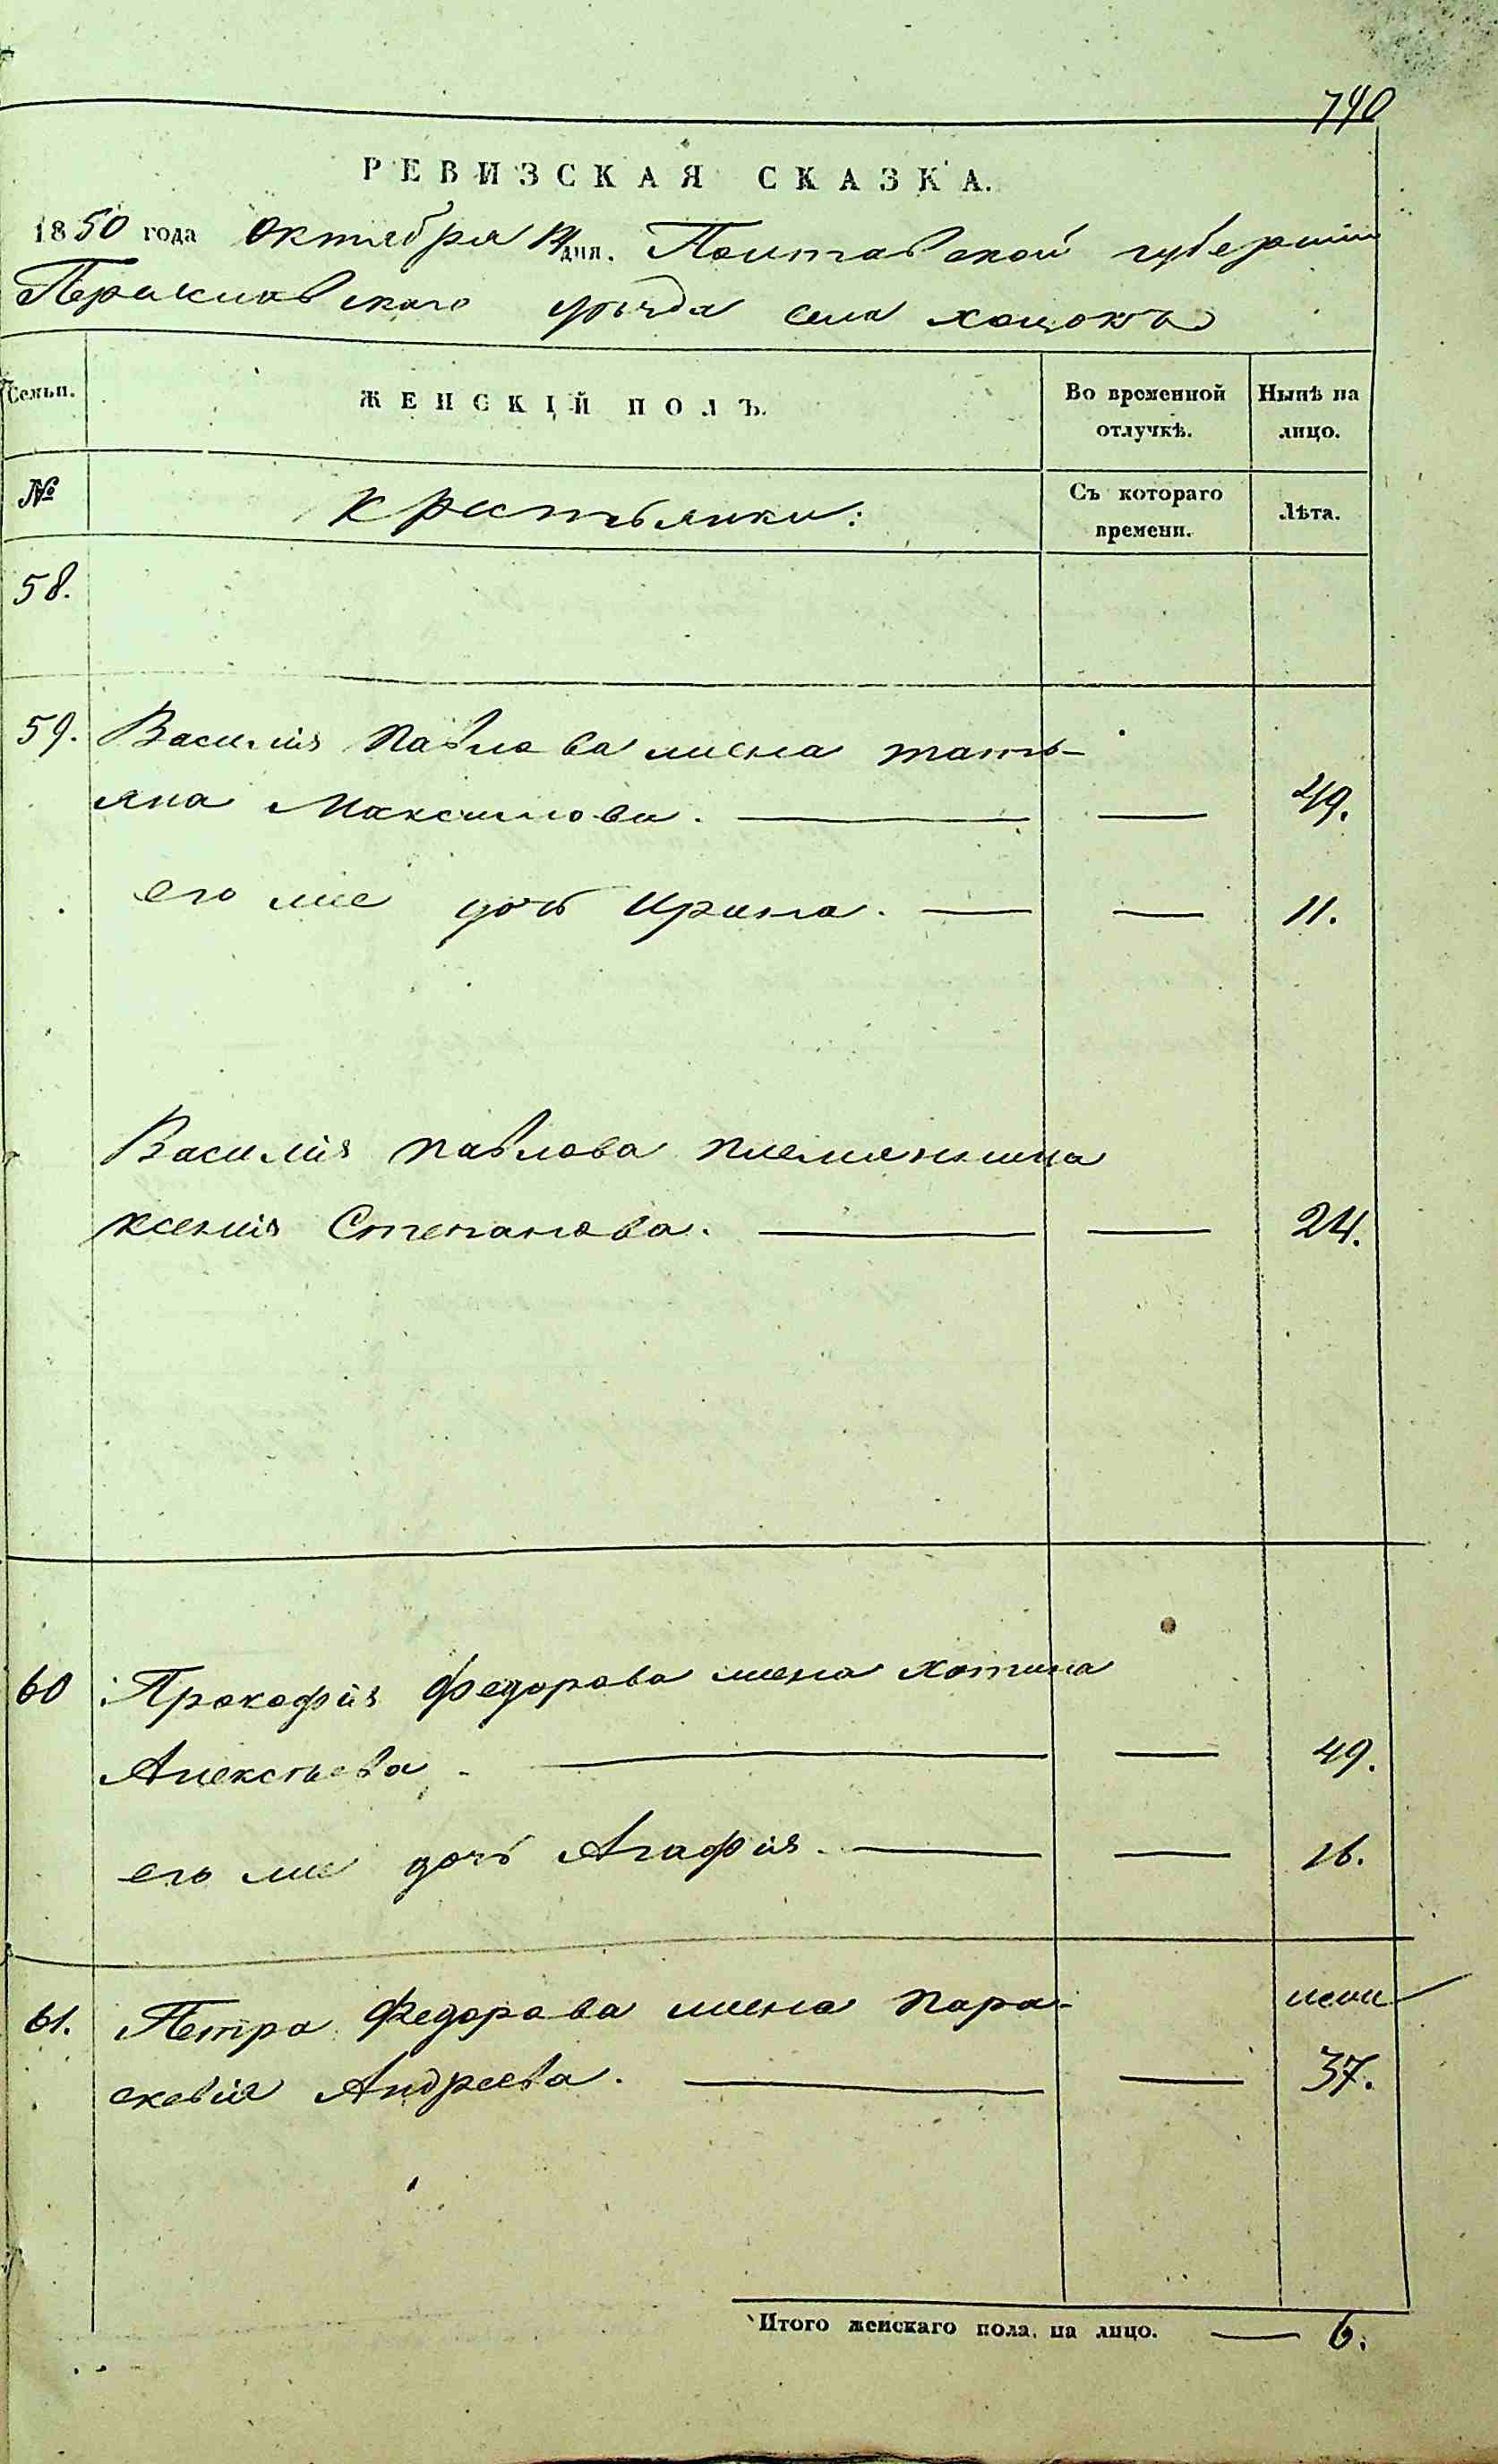 740
РЕВИЗСКАЯ СКАЗКА.
1850 года Октября дня. Полтавской губернии
Переяславского уѣзда села хоцокъ
Семьи. ЖЕНСКІЙ ПОЛЪ. Во временной отлучкѣ. Нынѣ на лицо.
№ Крестьянки: Съ котораго времени. Лѣта.
58.
59. Василія Павлова жена тать-
яна Максимова. — — 49.
его же дочь Ирина. — — 11.
Василія павлова племянница
ксенія Степанова. — — 24.
60 Прокофія Федорова жена
Алексѣева. — — 49.
его же дочь Агафія. — — 16.
61. Петра Федорова жена Пара-
скевія Андреева. — — 37.
Итого женскаго пола, на лицо. — 6.